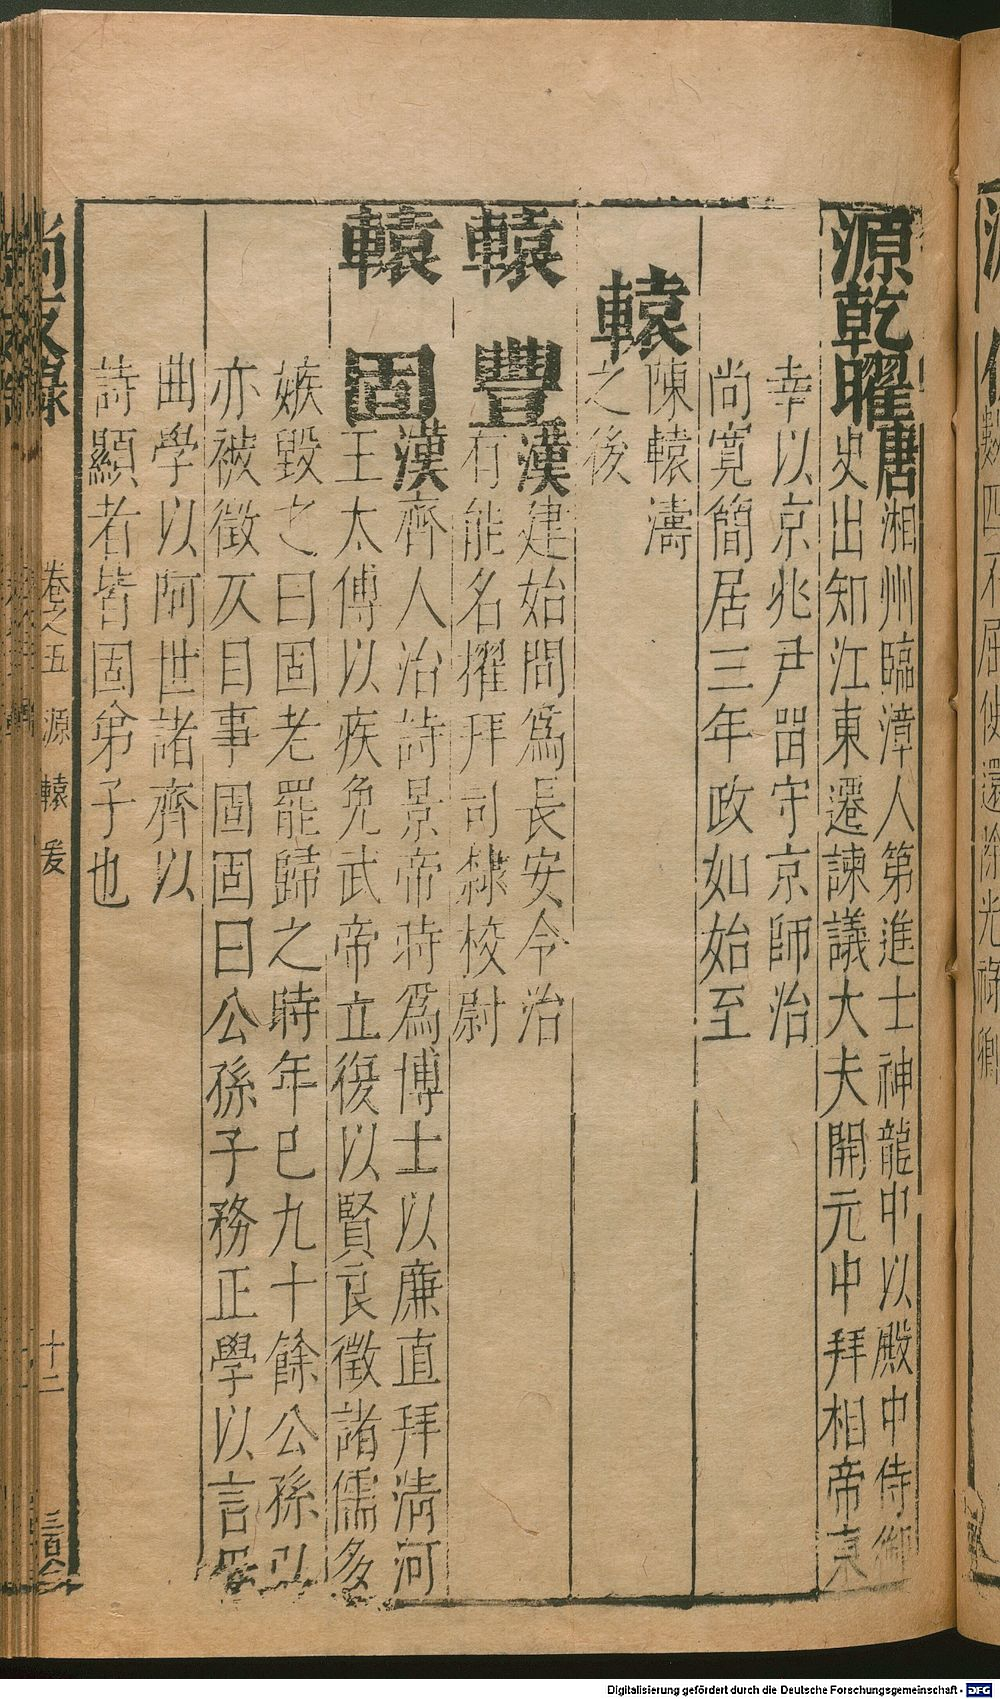 源乾曜
唐湘州臨漳人第進士神龍中以殿中侍御
史出知江東遷諫議大夫開元中拜相帝東
幸以京兆尹畱守京師治
尚寬簡居三年政如始至
轅
陳轅濤
之後
轅豐
漢建始間爲長安令治
有能名擢拜司隸校尉
轅固
漢齊人治詩景帝時爲博士以廉直拜清河
王太傅以疾免武帝立復以賢良徵諸儒多
嫉毀之曰固老罷歸之時年已九十餘公孫弘
亦被徵仄目事固固曰公孫子務正學以言無
曲學以阿世諸齊以
詩顯者皆固弟子也
尚友錄 卷之五 源 轅 爰 十二
Digitalisierung gefördert durch die Deutsche Forschungsgemeinschaft - DFG